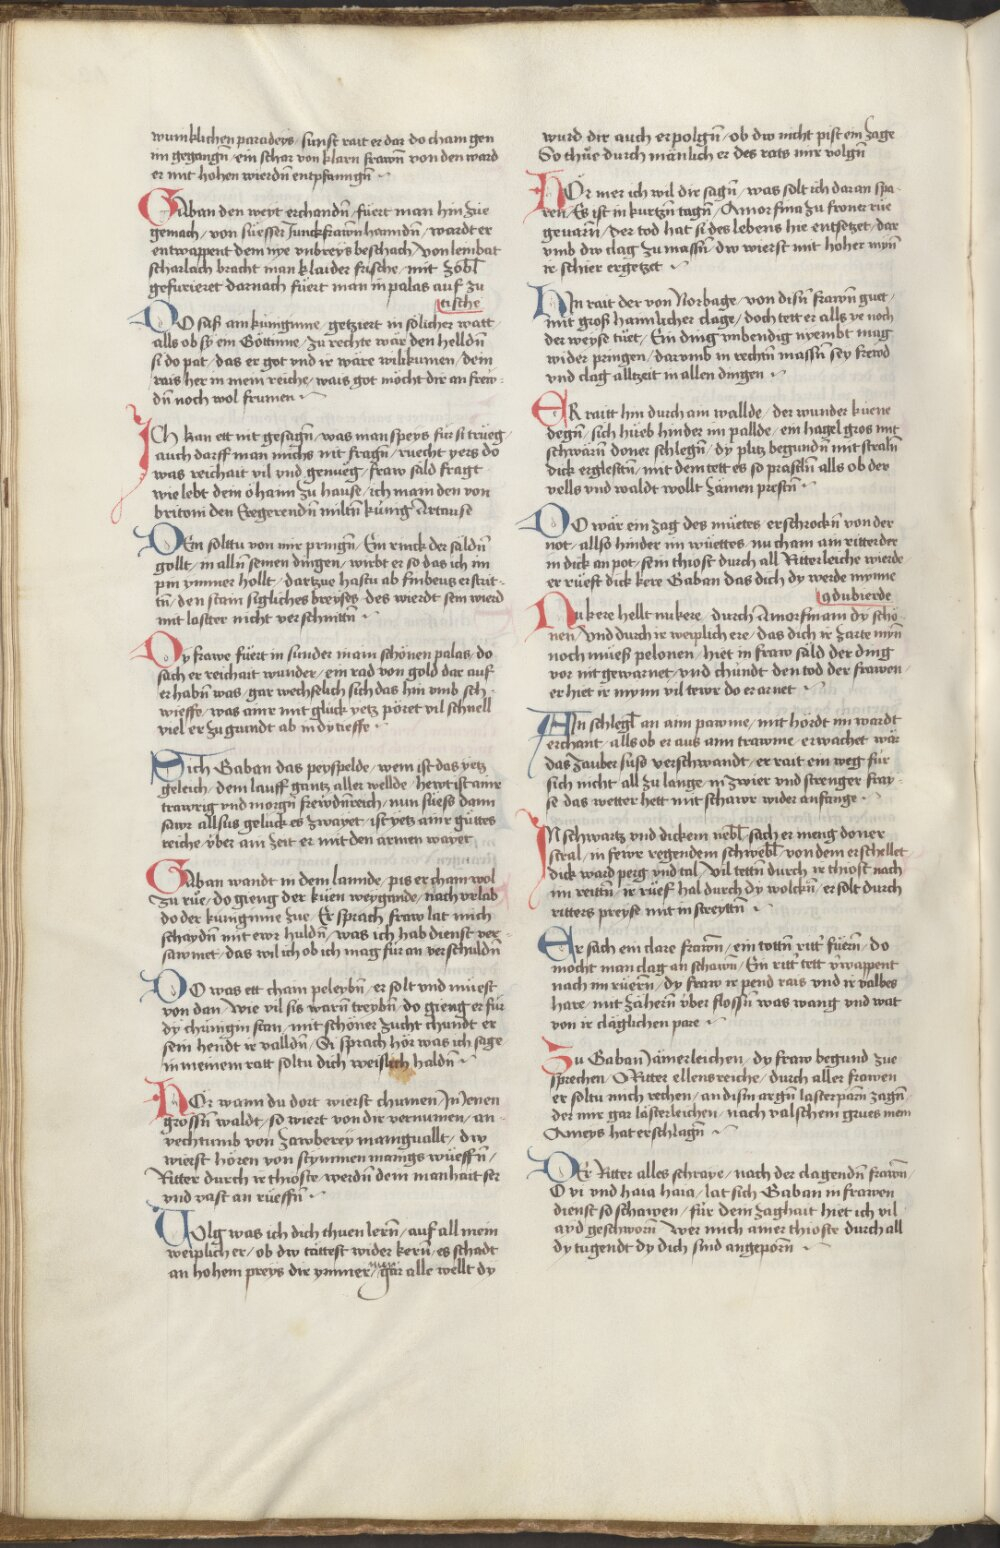 wunnklichen paradeys / sunst rait er dar do cham gen
im gegangn̄ / ein schar von klarn frawn̄ von den ward
er mit hohen wierdn̄ entpfanngn̄
Gaban den weyt erchandn̄ / füert man hin züe
gemach / von süesser Junckfrawn̄ hanndn̄ / wardt er
entwappent dem nye vnbreys beschach / von lembat
scharlach bracht man klaider frische / mit zobl̄
gefurieret darnach füert man in palas auf zu
tische
DO sass am küniginne / getziert in sölicher watt
alls ob sÿ ein Göttinne / zu rechte wär den helldn̄
si do pat / das er got vnd ir wäre wilikumen / dein
rais her in mein reiche / wais got möcht dir an frew-
dn̄ noch wol frumen
ICh kan ett nit gesagn̄ / was man speys für si trüeg /
auch darff man michs nit fragn̄ / ruecht yers do
was reichait vil vnd genüeg / fraw säld fragt
wie lebt dein öhann zu hause / ich main den von
britoni den Regerendn̄ miltn̄ künig Artause
DEin solttu von mir pringn̄ / Ein rinck der säldn̄
gollt / in alln̄ seinen dingen / wirdt er so das ich im
pin ymmer hollt / dartzue hastu ab fimbeus erstrit-
tn̄ / den stain sigliches breyses / des wierdt sein wierd
mit lasster nicht verschnittn̄
Dy frawe füert in sunder in ain schönen palas / do
sach er reichait wunder / ein rad von gold dar auf
erhabn̄ was / gar wechselich sich das hin vmb sch-
wieffe / was amr mit glück yetz pöret vil schnell
viel er zu grundt ab in dy tieffe
Sich Gaban das peyspelde / wem ist das yetz
geleich / dem lauff gantz aller wellde / hewt ist amr
trawrig vnd morgn̄ frewdn̄reich / nun süess dann
sawr allsus gelück es zwayet / ist yetz amr güttes
reiche / über ain zeit er mit den armen wayet
Gaban wandt in dem lannde / pis er cham wol
zu rüe / do gieng der küen weygande / nach vrlab
do der küniginne züe / Er sprach fraw lat mich
schaydn̄ mit ewr huldn̄ / was ich hab dienst ver-
sawmet / das wil ich ob ich mag für an verschuldn̄
DO was ett cham peleybn̄ / er solt vnd müest
von dan / wie vil sis warn̄ treybn̄ / do gieng er für
dy chünigin stan / mit schöner zucht chundt er
sein hendt ir valldn̄ / Si sprach hör was ich sage
in meinem ratt soltu dich weislich haldn̄
HÖr wann du dort wierst chumen / In yenen
grossn̄ waldt / so wiert von dir vernumen / an-
vechtumb von zawberey manigualt / dw
wierst hören von stymmen manigs wüeffn̄ /
Ritter durch ir thioste / werdn̄ dein manhait ser
vnd vast an rüeffn̄
VOlg was ich dich thuen lern̄ / auf all mein
weiplich er / ob dw tättest wider kern̄ / es schadt
an hohem preys dir ymmer mer / gar alle wellt dy
wurd dir auch erpolgn̄ / ob dw nicht pist ein zage
So thüe durch mänlich er des rats mir volgn̄
HÖr mer ich wil dir sagn̄ / was solt ich daran spa-
ren / Es ist in kurtzn̄ tagn̄ / Amorfina zu froner rüe
geuarn̄ / Der tod hat si des lebens hie entsetzet / dar
vmb dw clag zu massn̄ / dw wierst mit hoher mynn̄
ir schier ergetzet
HIn rait der von Norbage / von disn̄ frawn̄ guet /
mit gross hannlicher clage / doch tett er alls ye noch
der weyse tüet / Ein ding vnbendig nyembt mag
wider pringen / darumb in rechtn̄ massn̄ sey frewd
vnd clag alltzeit in allen dingen
ER raitt hin durch ain wallde / der wunder küene
degn̄ / sich hüeb hinder im pallde / ein hagel gros mit
schwärn̄ doner schlegn̄ / dy plitz begundn̄ mit straln̄
dick erglestn̄ / mit dem tett es so prastln̄ alls ob der
vells vnd waldt wollt zämen prestn̄
DO wär ein zag des müetes erschrockn̄ von der
not / allso hinder im wüettes / nu cham ain ritterder
in dick an pot / sein thiost durch all Ritterleiche wierde
er rüest dick kere Gaban das dich dy werde mynne
9dubierde
Nu kere hellt nu kere / durch Amorfinam dy schö-
nen / Vnd durch ir weiplich ere / das dich ir zarte myn̄
noch müess pelonen / hiet in fraw säld der ding
vor nit gewarnet / vnd chündt den tod der frawen
er hiet ir mynn vil tewr do erarnet
AIn schlegl̄ an ain pawme / mit hördt im wardt
erchant / alls ob er aus ainn trawme / erwachet wär
das zauber süss verschwandt / er rait ein weg für
sich nicht all zu lange / in zwier vnd strenger fray-
se das wetter hett mit schawr wider anfange
IN schwartz vnd dickem nebl̄ / sach er menig doner
stral / in fewr regendem schwebl̄ / von dem erschellet
dick ward perg vnd tal / Vil tettn̄ durch ir thiost nach
im reittn̄ / ir rüef hal durch dy wolckn̄ / er solt durch
ritters preyse mit in streyttn̄
Er sach ein clare frawn̄ / ein tottn̄ ritt' füern̄ / do
mocht man clag an schawn̄ / Ein ritt' tett v'wappent
nach im rüern̄ / dy fraw ir pend rais vnd ir valbes
hare / mit zähern̄ über flossn̄ was wang vnd wat
von ir cläglichen pare
Zu Gaban Jämerleichen / dy fraw begund züe
sprechen / O Ritter ellensreiche / durch aller frawen
er soltu mich rechen / an disin argn̄ lasterparn̄ zagn̄
der mir gar lästerleichen / nach valschem grues mein
Ameys hat erschlagn̄
DEr Ritter alles schraye / nach der clagendn̄ frawn̄ /
O vi vnd haia haia / lat sich Gaban in frawen
dienst so schawen / für dem zaghait hiet ich vil
ayd geschworn̄ / Wer mich ainer thioste durch all
dy tugendt dy dich sind angeporn̄